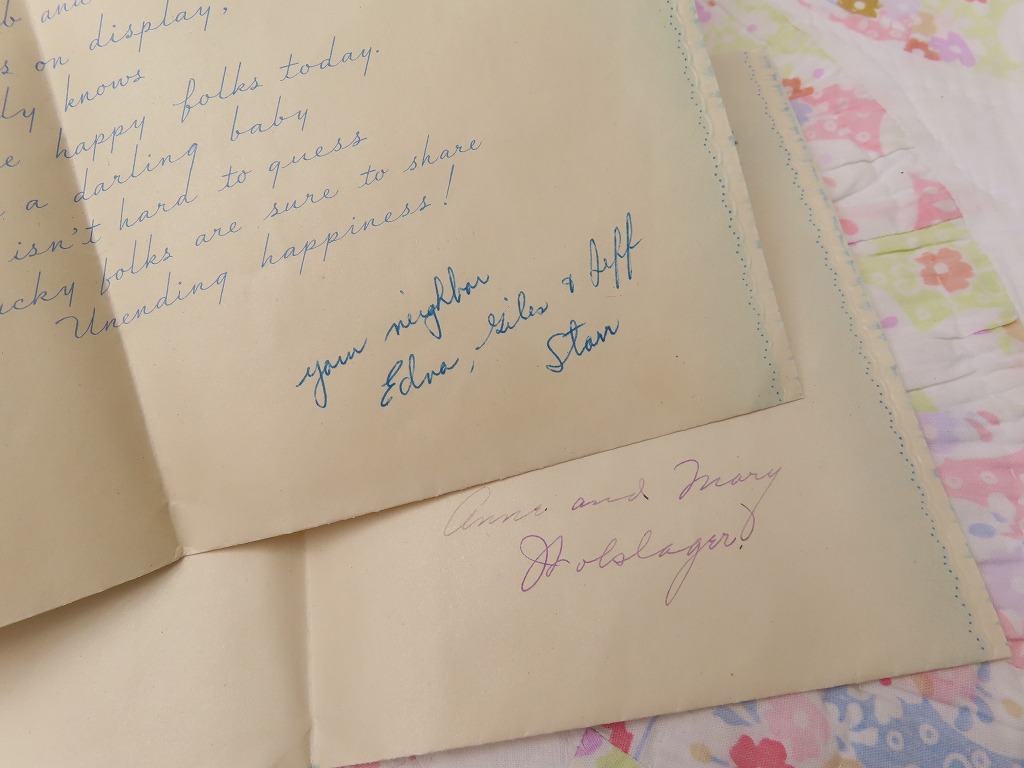 on display,
knows
happy folks today.
a darling baby
isn't hard to guess
folks are sure to share
Unending happiness!
your neighbor
Edna, Giles & Jeff
Starr
Anne and Mary
Holslager